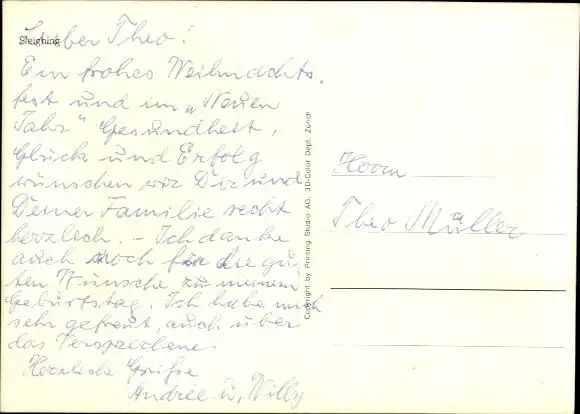 Sleighing
Lieber Theo!
Ein frohes Weihnachts-
fest und im „Neuen
Jahr" Gesundheit,
Glück und Erfolg
wünschen wir Dir und
Deiner Familie recht
herzlich. – Ich danke
auch noch für die gu-
ten Wünsche zu meinem
Geburtstag. Ich habe mich
sehr gefreut, auch über
das Versprochene.
Herzliche Grüße
Andrée u. Willy
Copyright by Printing Studio AG, 3D-Color Dept. Zürich
Herrn
Theo Müller